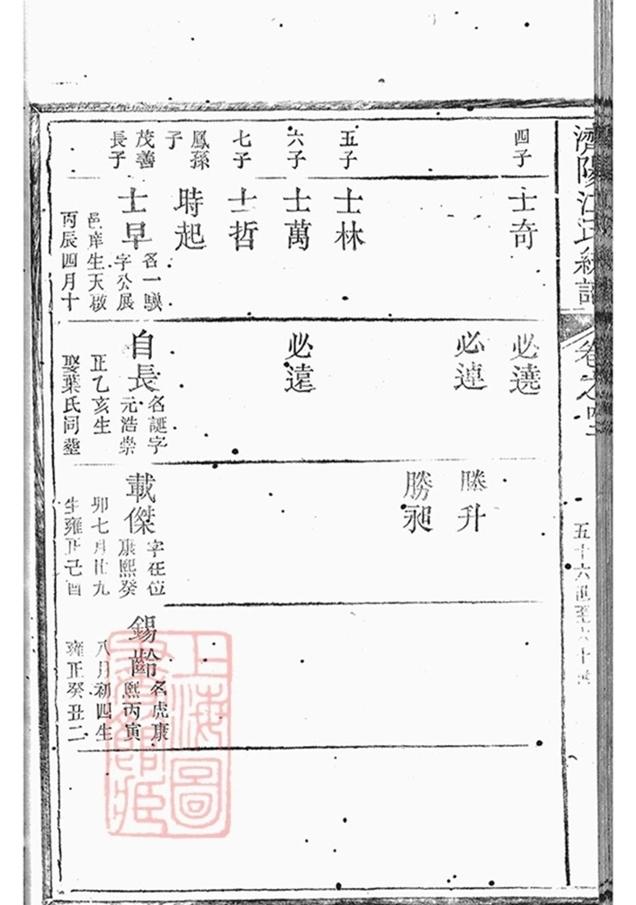 濟陽江氏統譜
卷之四
五十六世至六十世
四子
士奇
五子
士林
六子
士萬
七子
士哲
鳳孫子
時起
茂善長子
士早
名一驥
字公展
邑庠生天啟
丙辰四月十
必遶
必連
必遠
自長
名誕字
元浩崇
正乙亥生
娶葉氏同塟
勝升
勝昶
載傑
字在位
康熙癸
卯七月廿九
生雍正己酉
錫齡
名虎康
熙丙寅
八月初四生
雍正癸丑二
上海圖
書館藏